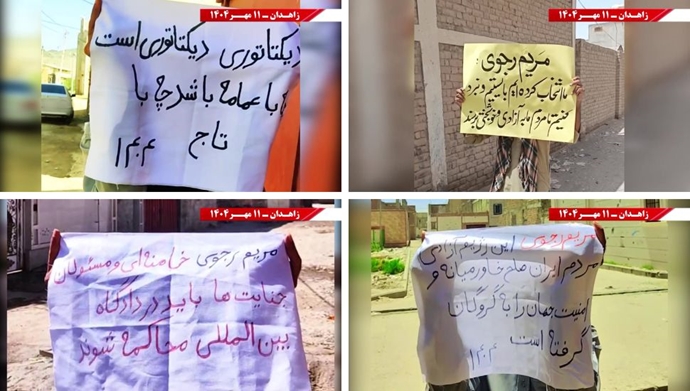 زاهدان – ۱۱ مهر ۱۴۰۴
دیکتاتوری دیکتاتوری است
با عمامه باشد چه با
تاج
۱۴۰۴
زاهدان – ۱۱ مهر ۱۴۰۴
مریم رجوی
ما انتخاب کرده ایم بایستیم و نبرد
کنیم تا مردم ما به آزادی و خوشبختی برسند
زاهدان – ۱۱ مهر ۱۴۰۴
مریم رجوی خامنه ای و مسئولان
جنایت ها باید در دادگاه
بین المللی محاکمه شوند
زاهدان – ۱۱ مهر ۱۴۰۴
مریم رجوی این رژیم آزادی
مردم ایران صلح خاورمیانه و
امنیت جهان را به گروگان
گرفته است
۱۴۰۴